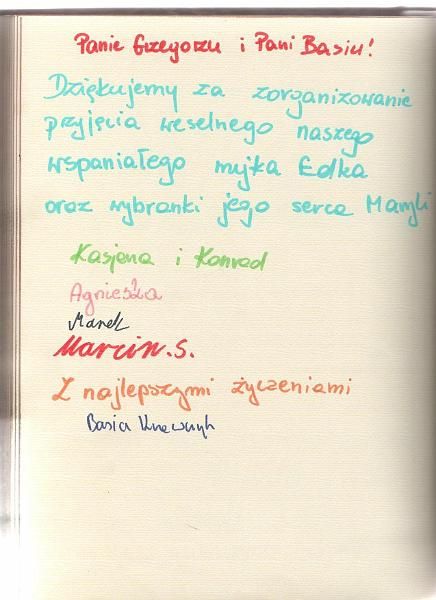 Panie Grzegorzu i Pani Basiu!
Dziękujemy za zorganizowanie
przyjęcia weselnego naszego
wspaniałego wujka Edka
oraz wybranki jego serca Maryli
Kasjena i Konrad
Agnieszka
Marek
Marcin.S.
Z najlepszymi życzeniami
Basia